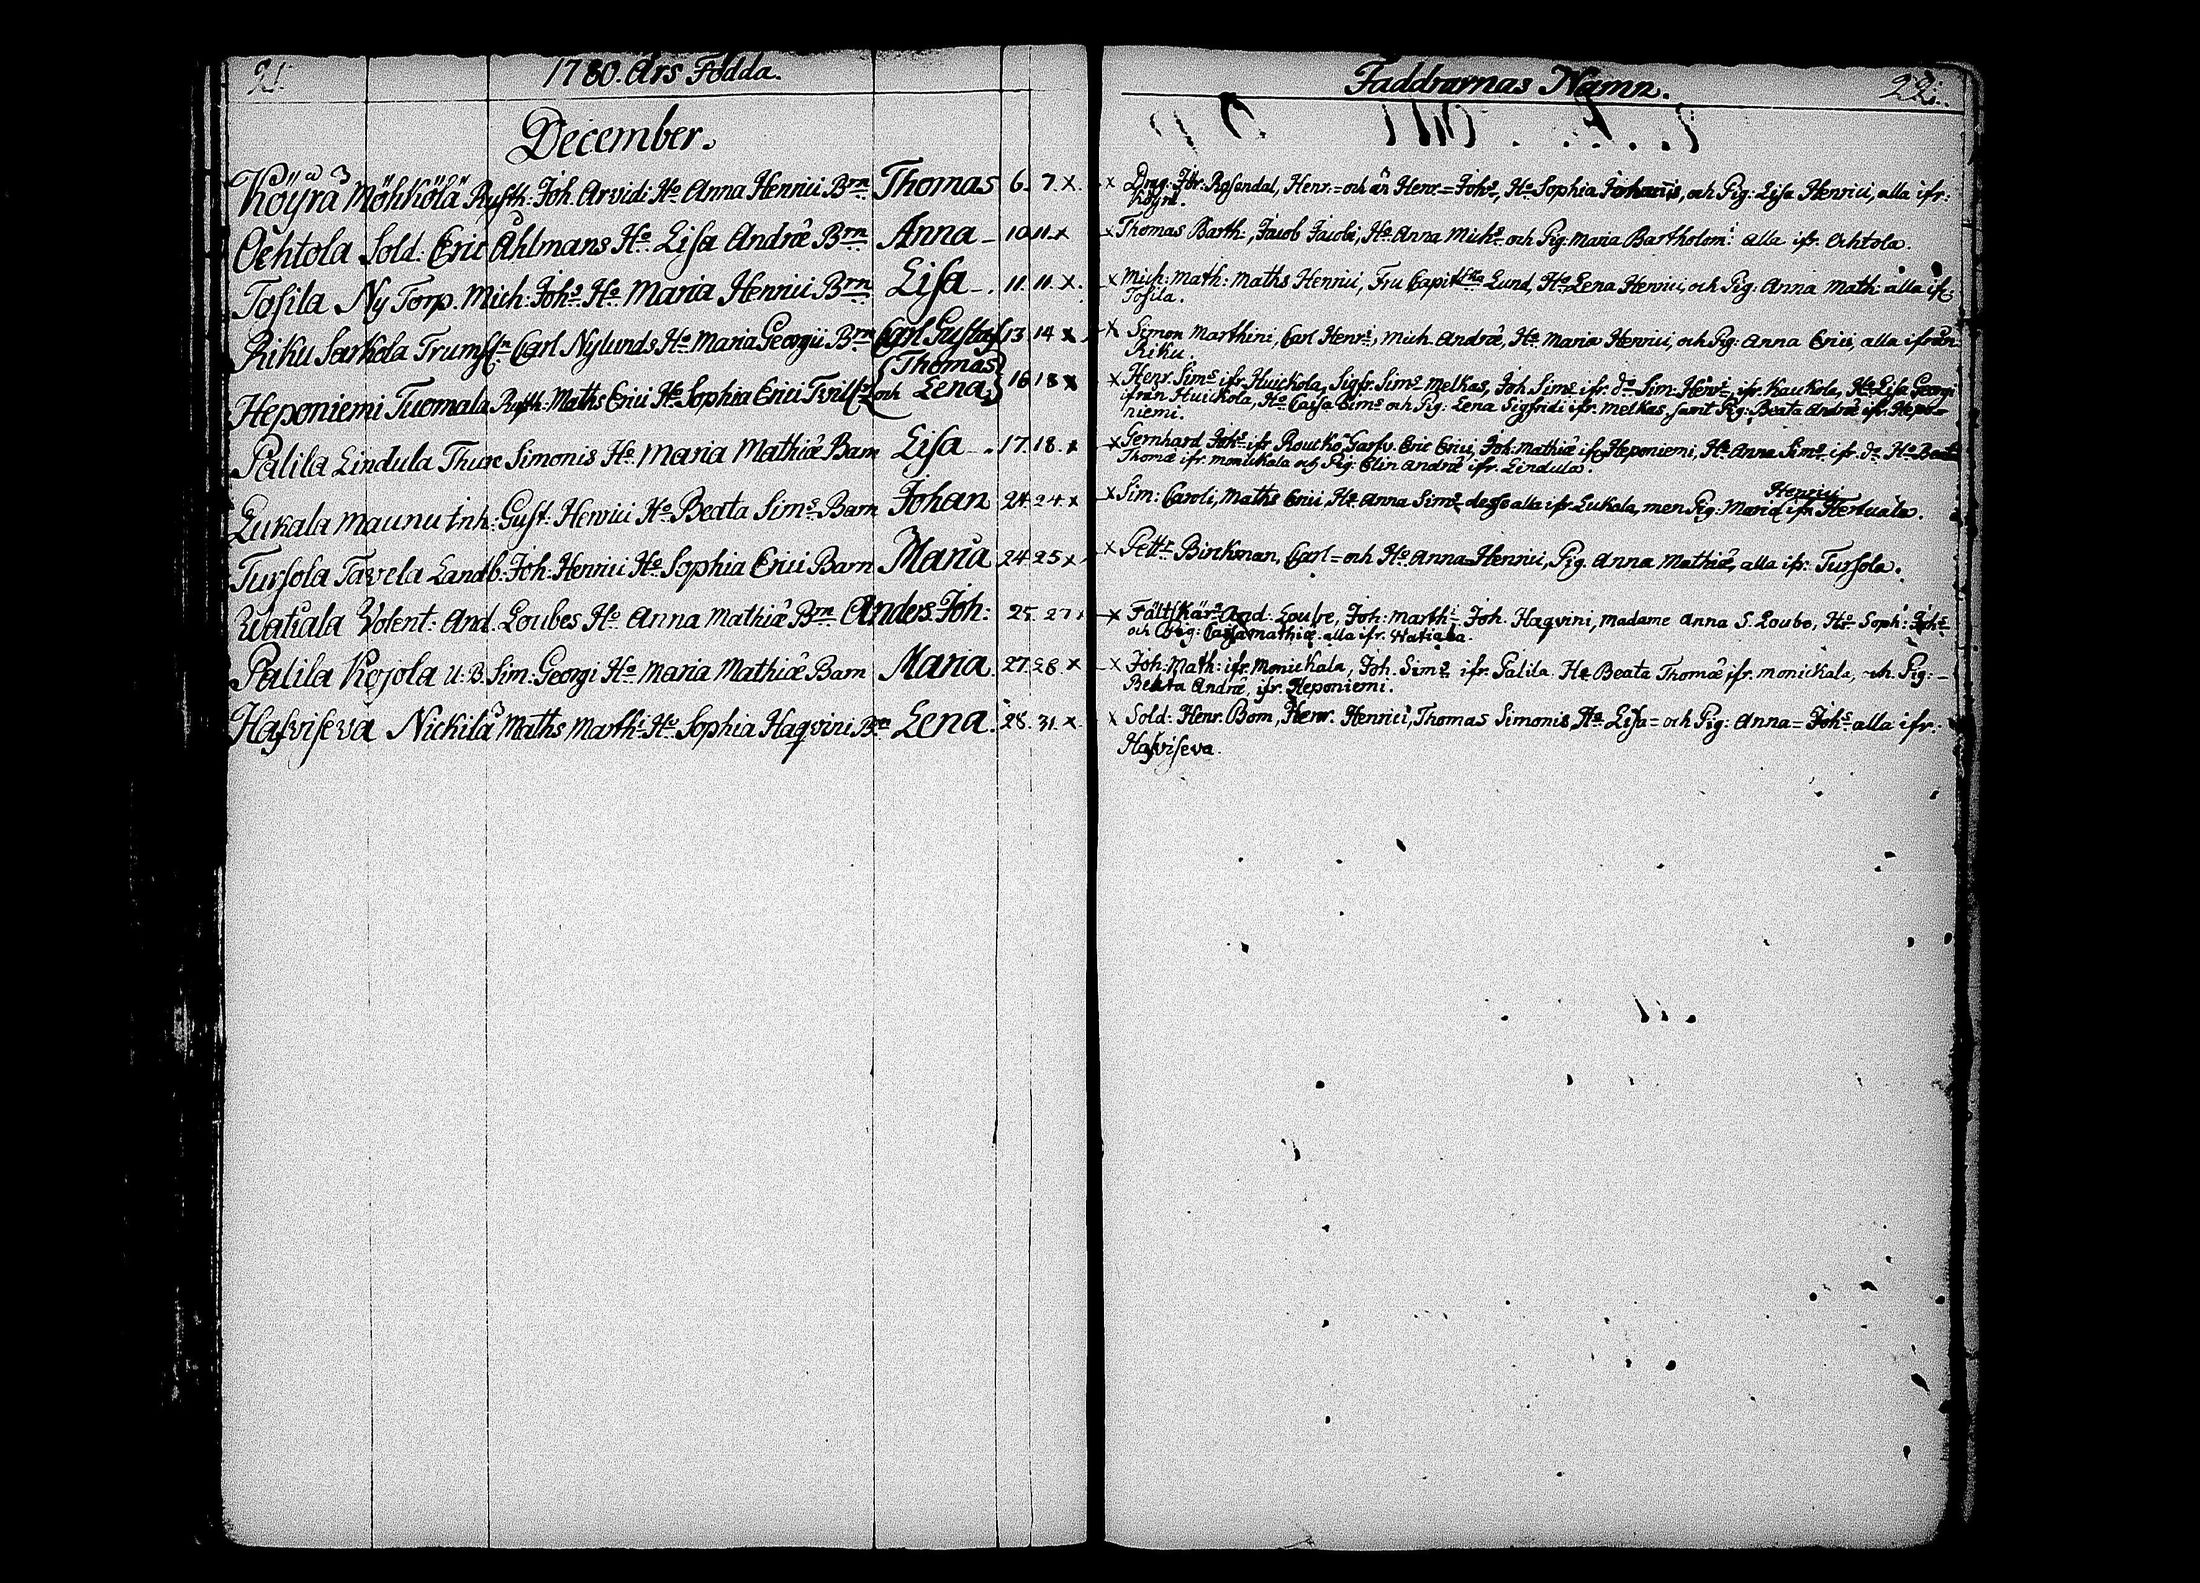 21.
1780. Års Födda.
December.
Köyrä Möhkölä Rusth: Joh. Arvidi Ho Anna Henrici Brn Thomas 6. 7. x.
Ochtola Sold: Eric Åhlmans Ho Lisa Andræ Brn Anna 10. 11. x
Tosila Ny Torp. Mich: Johs Ho Maria Henrici Brn Lisa 11. 11. x.
Riku Sarkola Carl Nylunds Ho Maria Georgii Brn Carl Gustaf 13 14 x
{Thomas}
Heponiemi Tuomala Rusth. Maths Erici Ho Sophia Erici och Lena} 16 18 x
Palila Lindula Simonis Ho Maria Mathiæ Barn Lisa 17. 18. x
Lukala Maunu Inh: Gust: Henrici Ho Beata Sims Barn Johan 24. 24 x
Tursola Tavela Landb: Joh: Henrici Ho Sophia Erici Barn Maria 24. 25 x
Watiala Volent: And. Loubes Ho Anna Mathiæ Brn Anders Joh: 25. 27
Palila Kojola U: B. Sim: Georgi Ho Maria Mathiæ Barn Maria 27. 28. x
Hasviseva Nickilä Maths Marthi Ho Sophia Haqvini Brn Lena. 28. 31. x
Faddrarnas Namn. 22.
x Drag: Rosendal, Henr:= och än Henr:= Johs, Ho Sophia Johanis, och Pig: Lisa Henrici, alla ifr:
Köyrä.
x Thomas Barth:, Jacob Jacobi, Ho Anna Michs och Pig. Maria Bartholom: alla ifr. Ochtola.
x Mich: Math: Maths Henrici, Fru Lund, Ho Lena Henrici, och Pig: Anna Math: alla ifr.
Tosila.
x Simon Marthini, Carl Henri, Mich. Andræ, Ho Maria Henrici, och Pig: Anna Erici, alla ifrån
Riku.
x Henr. Sims ifr. Huickola, Sigfr. Sims Melkas, Joh. Sims ifr. do Sim: Henri, ifr. Kaukola, Ho Lisa Georgi
ifrån Huickola, Ho Caisa Sims och Pig: Lena Sigfridi ifr. Melkas, samt Pig: Beata Andræ ifr. Hepo=
niemi.
x Gernhard Johs ifr. Eric Erici, Joh: Mathiæ ifr. Heponiemi, Ho Anna Sims ifr. do Ho Beata
Thomæ ifr. Monickala och Pig: Elin Andræ ifr. Lindula.
Henrici
x Sim: Caroli, Maths Erici, Ho Anna Sims desse alla ifr. Lukala, men Pig: Maria ifr. Hertuala.
x Pettr Birckman, Carl= och Ho Anna= Henrici, Pig. Anna Mathiæ, alla ifr. Tursola.
x Fältskärn And: Loube, Joh: Marthi Joh. Haqvini, Madame Anna S. Loube, Ho Soph: Johs
och Pig: Caisa Mathiæ alla ifr. Watiala.
x Joh: Math: ifr. Monickala, Joh. Sims ifr. Palila. Ho Beata Thomæ ifr. Monickala, och. Pig: –
Beata Andræ, ifr. Heponiemi.
x Sold: Henr. Bom, Henr. Henrici, Thomas Simonis, Ho Lisa= och Pig: Anna= Johs alla ifr:
Hasviseva.